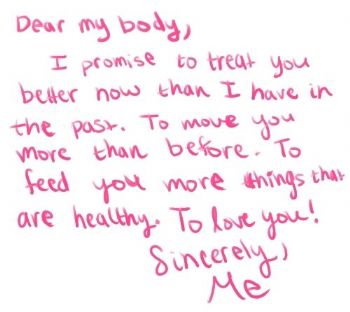 Dear my body,
I promise to treat you
better now than I have in
the past. To move you
more than before. To
feed you more things that
are healthy. To love you!
Sincerely,
Me